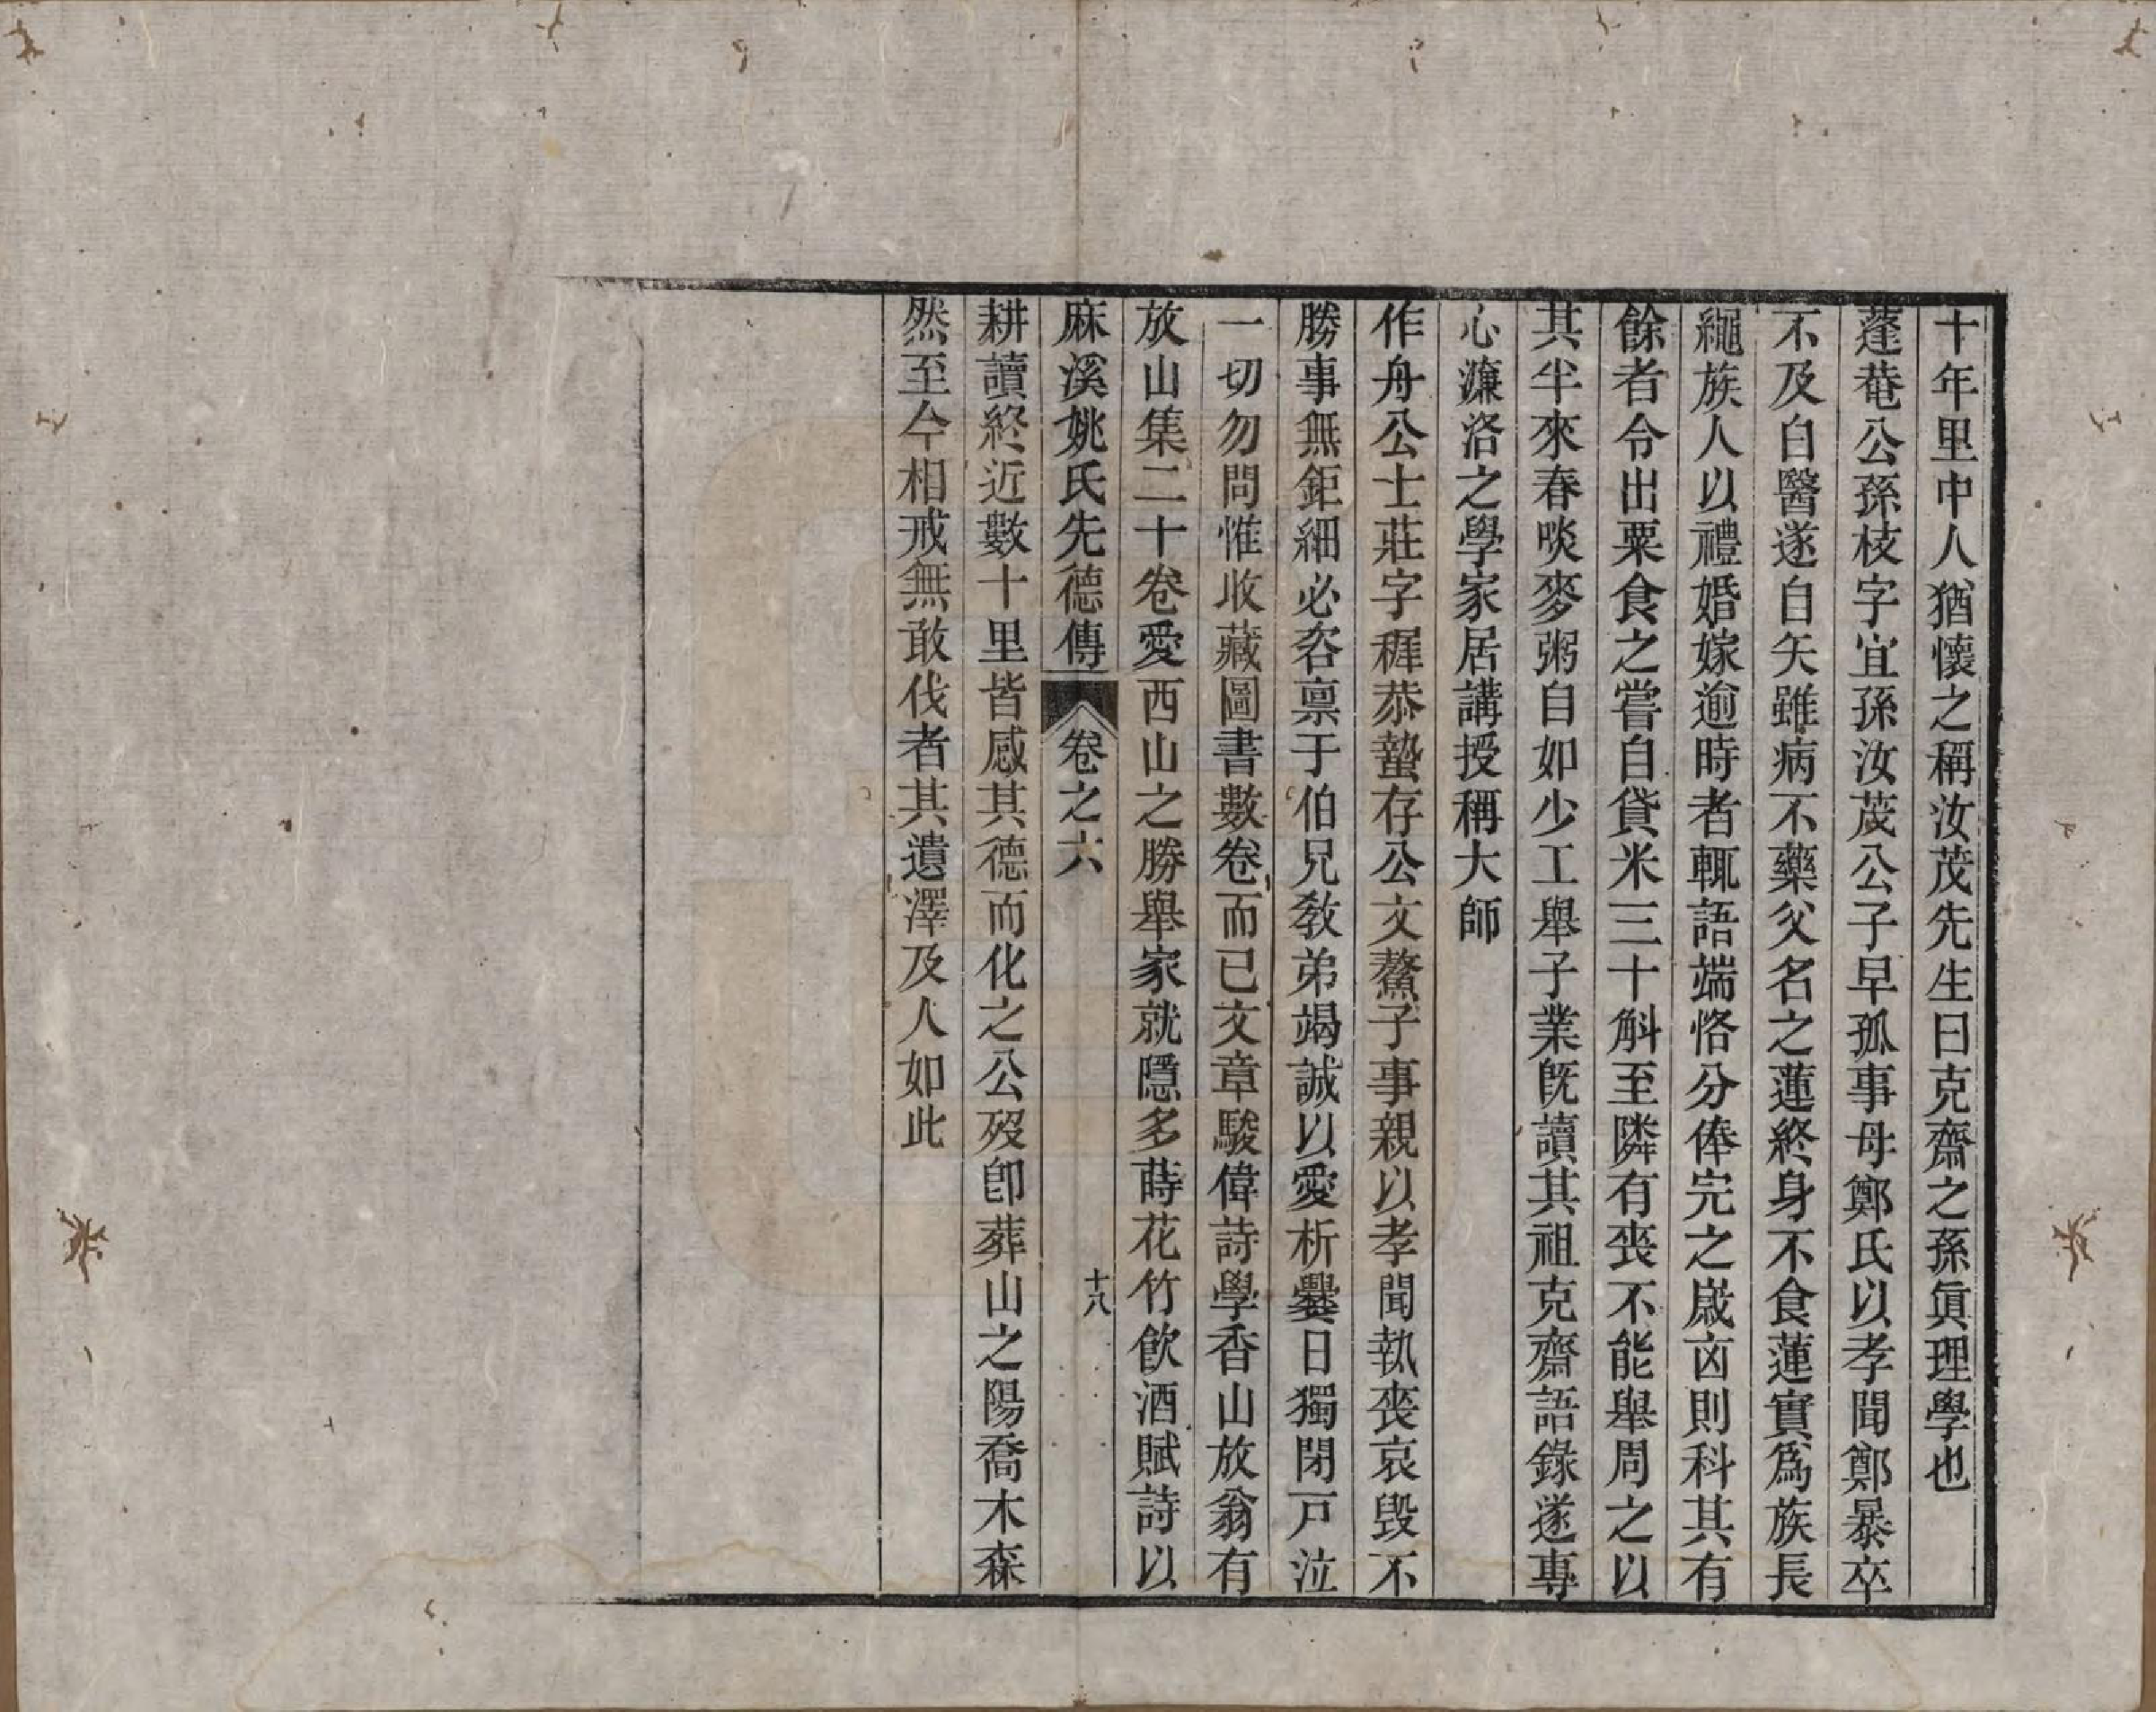 十年里中人猶懷之稱汝茂先生曰克齋之孫眞理學也
蓬菴公孫枝字宜孫汝茂公子早孤事母鄭氏以孝聞鄭暴卒
不及白醫遂自矢雖病不藥父名之蓮終身不食蓮實爲族長
繩族人以禮婚嫁逾時者輒語端恪分俸完之嵗㐫則科其有
餘者令出粟食之嘗自貸米三十斛至隣有喪不能舉周之以
其半來春啖麥粥自如少工舉子業旣讀其祖克齋語錄遂專
心濂洛之學家居講授稱大師
作舟公士莊字穉恭蟄存公文鰲子事親以孝聞執喪哀毀不
勝事無鉅細必咨禀于伯兄敎弟竭誠以愛析爨日獨閉戸泣
一切勿問惟收藏圖書數卷而已文章駿偉詩學香山放翁有
放山集二十卷愛西山之勝舉家就隱多蒔花竹飮酒賦詩以
麻溪姚氏先德傳 卷之六 十八
耕讀終近數十里皆感其德而化之公歿卽葬山之陽喬木森
然至今相戒無敢伐者其遺澤及人如此